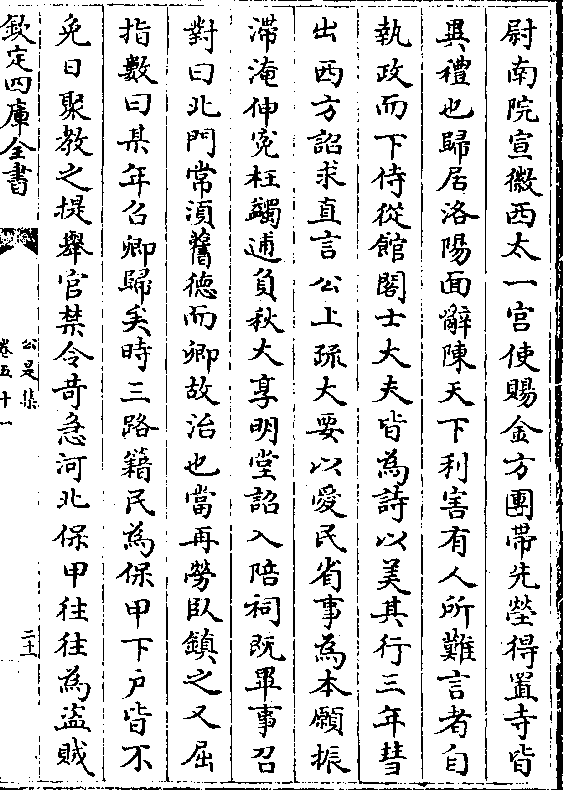 尉南院宣徽西太一宮使賜金方團帶先塋得置寺皆
異禮也歸居洛陽面辭陳天下利害有人所難言者自
執政而下侍從館閣士大夫皆為詩以美其行三年彗
出西方詔求直言公上疏大要以愛民省事為本願振
滯淹伸寃枉蠲逋負秋大享明堂詔入陪祠既畢事召
對曰北門常須舊德而卿故治也當再勞臥鎮之又屈
指數曰某年召卿歸矣時三路籍民為保甲下戶皆不
免日聚教之提舉官禁令苛急河北保甲往往為盜賊
欽定四庫全書
公是集
卷五十一
二十